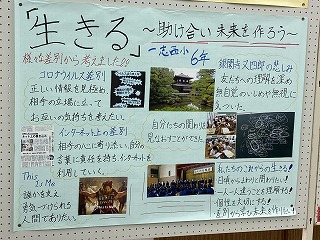 「生きる」
～助け合い 未来を作ろう～
一志西小 6年
様々な差別から考えました!!
コロナウイルス差別
正しい情報を見極め、
相手の立場に立って
お互いの気持ちを考えたい。
インターネット上の差別
相手の心に寄りそい、自分の
言葉に責任を持ちインターネットを
利用していく。
This
Is Me
誰かを支え
勇気づけられる
人間でありたい。
自分たちの関わりを
見なおすことができた
銀閣寺又四郎の悲しみ
友だちへの理解を深め
無自覚のいじめや無視に
気づいた。
私たちのこれからの生きる!
日頃からまわりと関わりたい!
一人一人違うことを理解する!
個性を大切にする!
差別から学び未来を作りたい!